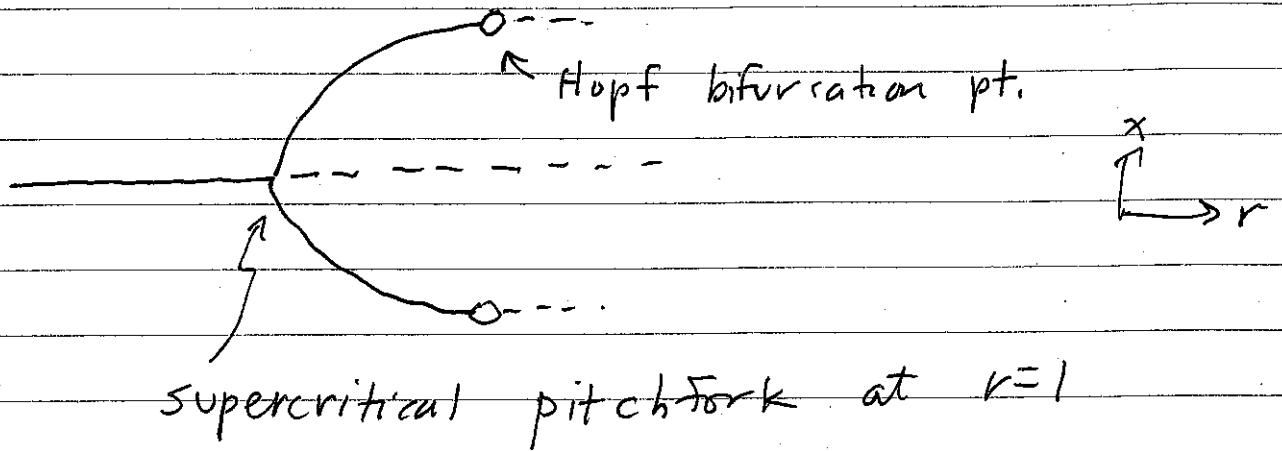 Hopf bifurcation pt.
x
r
supercritical pitchfork at r=1